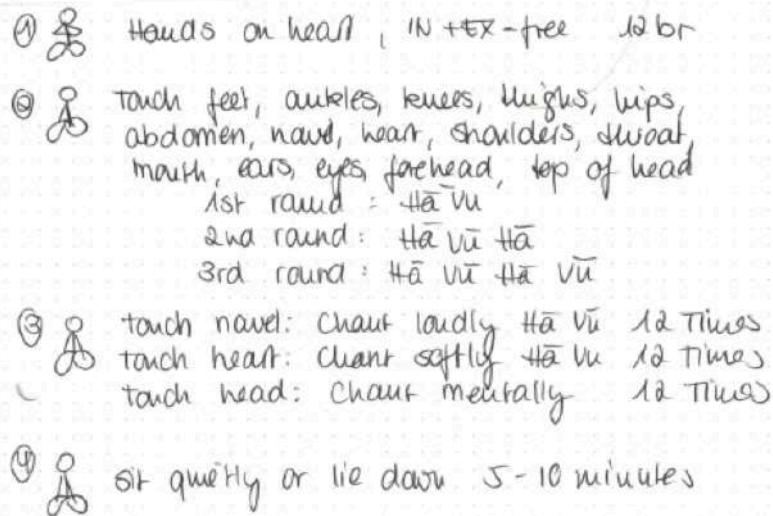 ① Hands on heart, IN + EX - free 12 br
② touch feet, ankles, knees, thighs, hips,
abdomen, navel, heart, shoulders, throat,
mouth, ears, eyes, forehead, top of head
1st round: Hā Vu
2nd round: Hā Vū Hā
3rd round: Hā Vū Hā Vū
③ touch navel: Chant loudly Hā Vū 12 Times
touch heart: Chant softly Hā Vu 12 Times
touch head: Chant mentally 12 Times
④ sit quietly or lie down 5-10 minutes